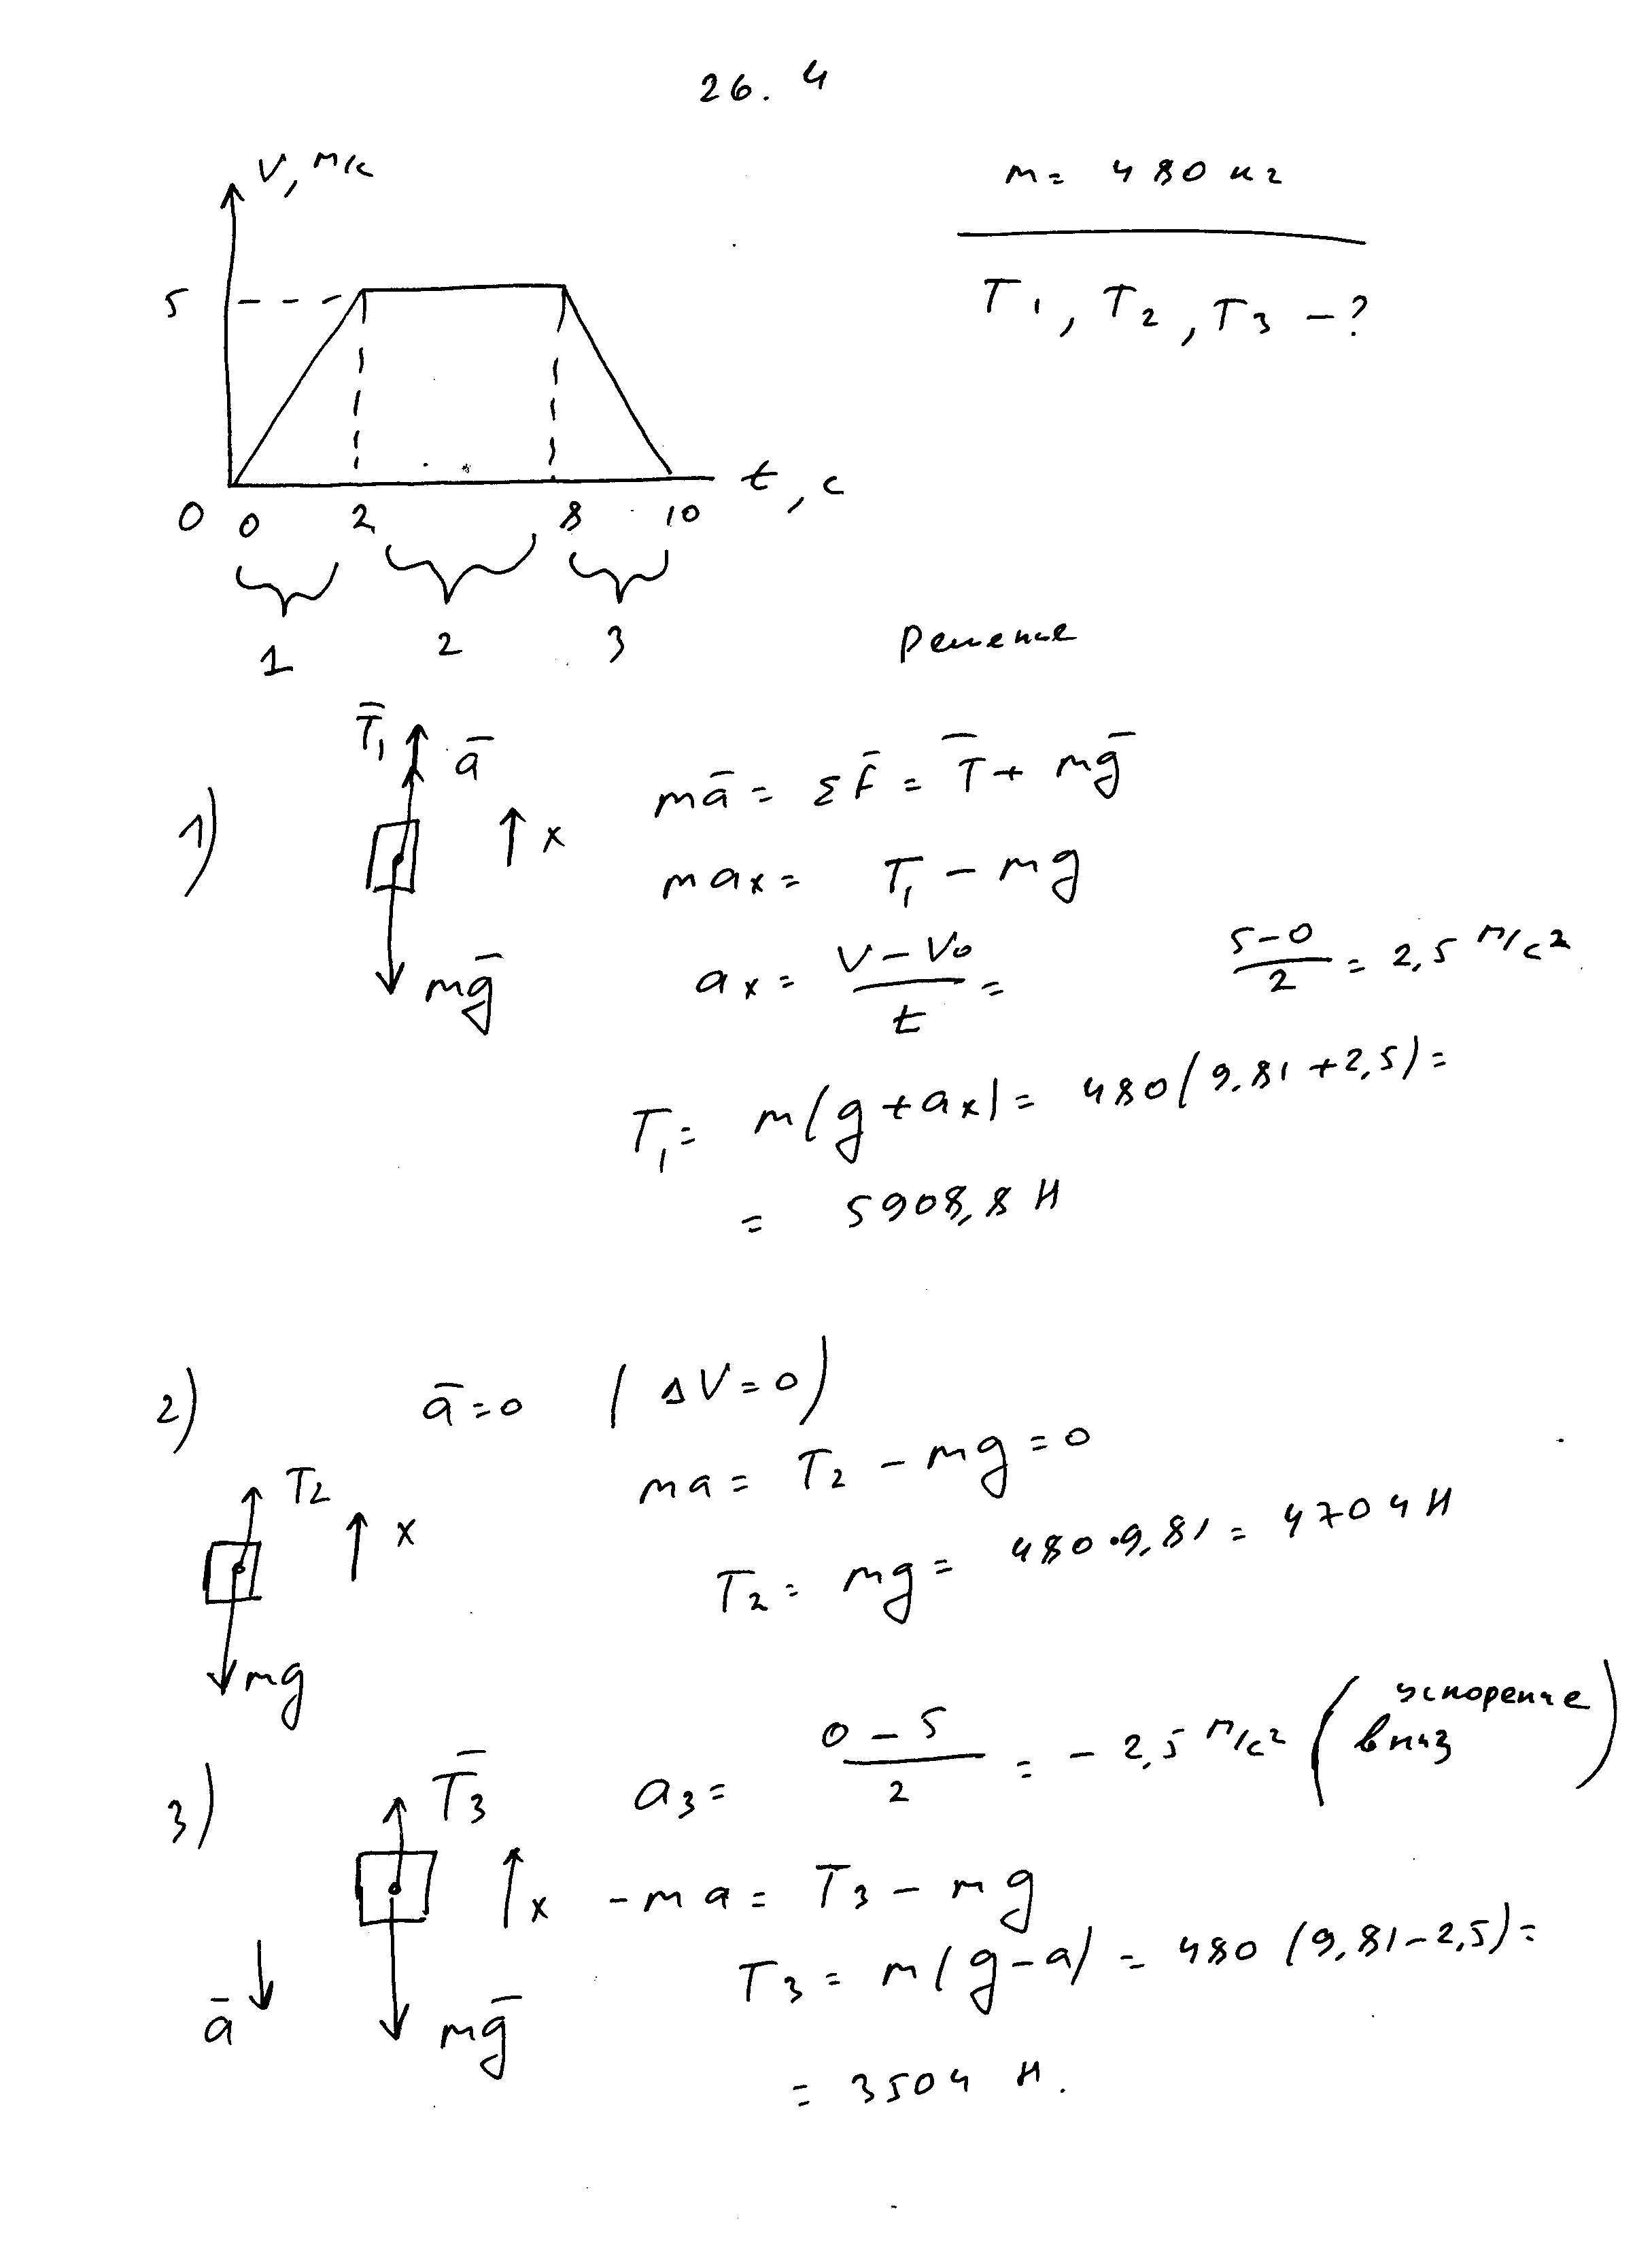 26.4
V, м/с
m = 480 кг
5
T₁, T₂, T₃ – ?
t, с
0 0 2 8 10
1 2 3
Решение
1)
T̄₁ ā
x
mḡ
mā = ΣF̄ = T̄ + mḡ
maₓ = T₁ – mg
aₓ = (V – V₀)/t = (5–0)/2 = 2,5 м/с²
T₁ = m(g + aₓ) = 480(9,81 + 2,5) =
= 5908,8 Н
2) ā = 0 (ΔV = 0)
T₂
x
mg
ma = T₂ – mg = 0
T₂ = mg = 480·9,81 = 4704 Н
3)
T̄₃
x
ā
mḡ
a₃ = (0 – 5)/2 = – 2,5 м/с² (ускорение вниз)
–ma = T₃ – mg
T₃ = m(g–a) = 480 (9,81–2,5) =
= 3504 Н.